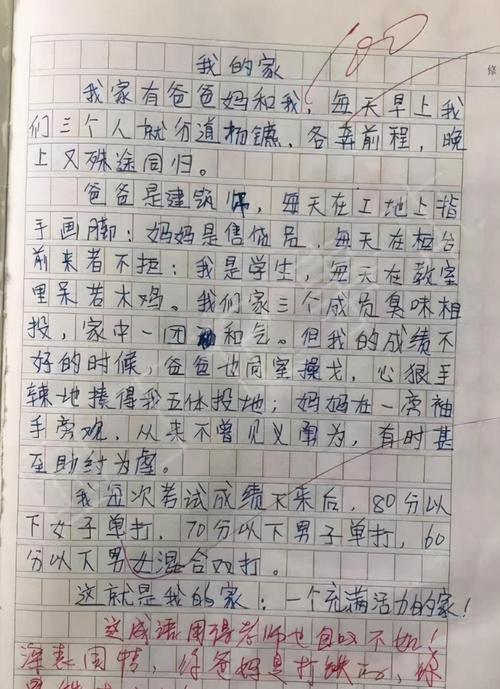 100
我的家
我家有爸爸妈和我，每天早上我
们三个人就分道扬镳，各奔前程，晚
上又殊途同归。
爸爸是建筑师，每天在工地上指
手画脚；妈妈是售货员，每天在柜台
前来者不拒；我是学生，每天在教室
里呆若木鸡。我们家三个成员臭味相
投，家中一团和气。但我的成绩不
好的时候，爸爸也同室操戈，心狠手
辣地揍得我五体投地；妈妈在一旁袖
手旁观，从来不曾见义勇为，有时甚
至助纣为虐。
我每次考试成绩下来后，80分以
下女子单打，70分以下男子单打，60
分以下男女混合双打。
这就是我的家：一个充满活力的家！
这成语用得老师也自叹不如！
深表同情，你爸妈是打铁的，你